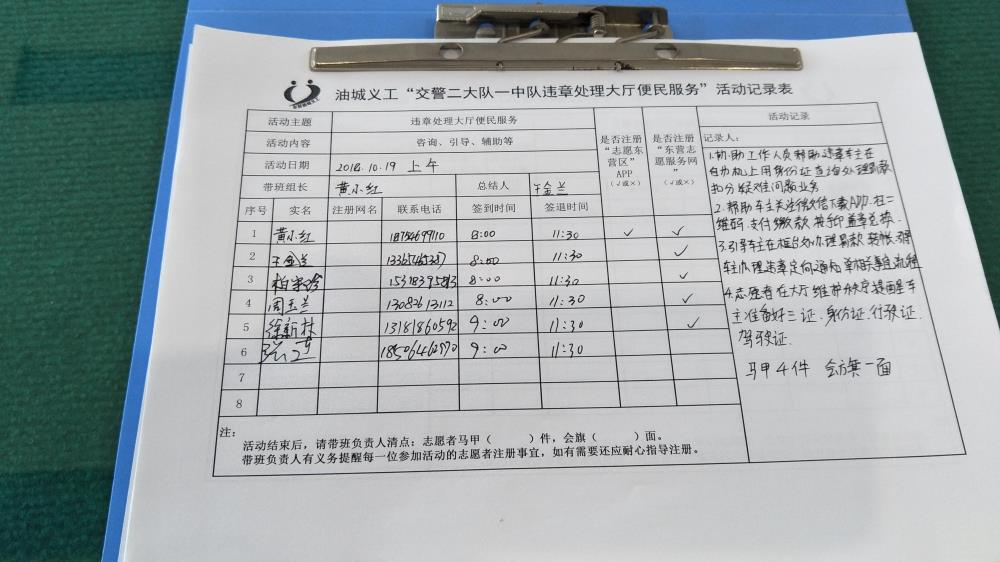 油城义工“交警二大队一中队违章处理大厅便民服务”活动记录表
活动主题 违章处理大厅便民服务 是否注册“志愿东营区”APP（√或×） 是否注册“东营志愿服务网”（√或×） 活动记录
活动内容 咨询、引导、辅助等
活动日期 2018.10.19 上午
带班组长 黄小红 总结人 王金兰
序号 实名 注册网名 联系电话 签到时间 签退时间
1 黄小红 18754699110 8:00 11:30 ✓ ✓
2 王金兰 8:00 11:30 ✓
3 8:00 11:30 ✓
4 周玉兰 13082613112 8:00 11:30 ✓
5 徐新村 13181860592 9:00 11:30 ✓
6 18506462970 9:00 11:30
7
8
记录人：
1.协助工作人员帮助违章车主在
自助机上用身份证查询处理罚款
扣分疑难问题业务
2.帮助车主关注微信下载APP.扫二
维码.支付缴款 按手印盖章兑换.
3.引导车主在柜台办理罚款
4.志愿者在大厅维护秩序提醒车
主准备好三证.身份证.行驶证.
驾驶证.
马甲4件 会旗一面
注：
活动结束后，请带班负责人清点：志愿者马甲（ ）件，会旗（ ）面。
带班负责人有义务提醒每一位参加活动的志愿者注册事宜，如有需要还应耐心指导注册。